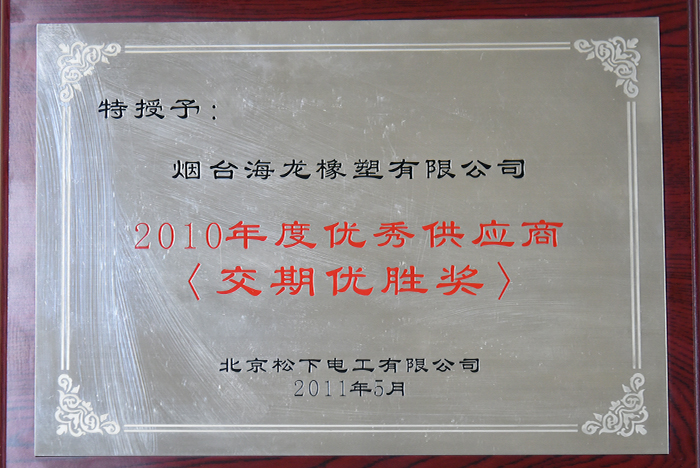 特授予：
烟台海龙橡塑有限公司
2010年度优秀供应商
〈交期优胜奖〉
北京松下电工有限公司
2011年3月